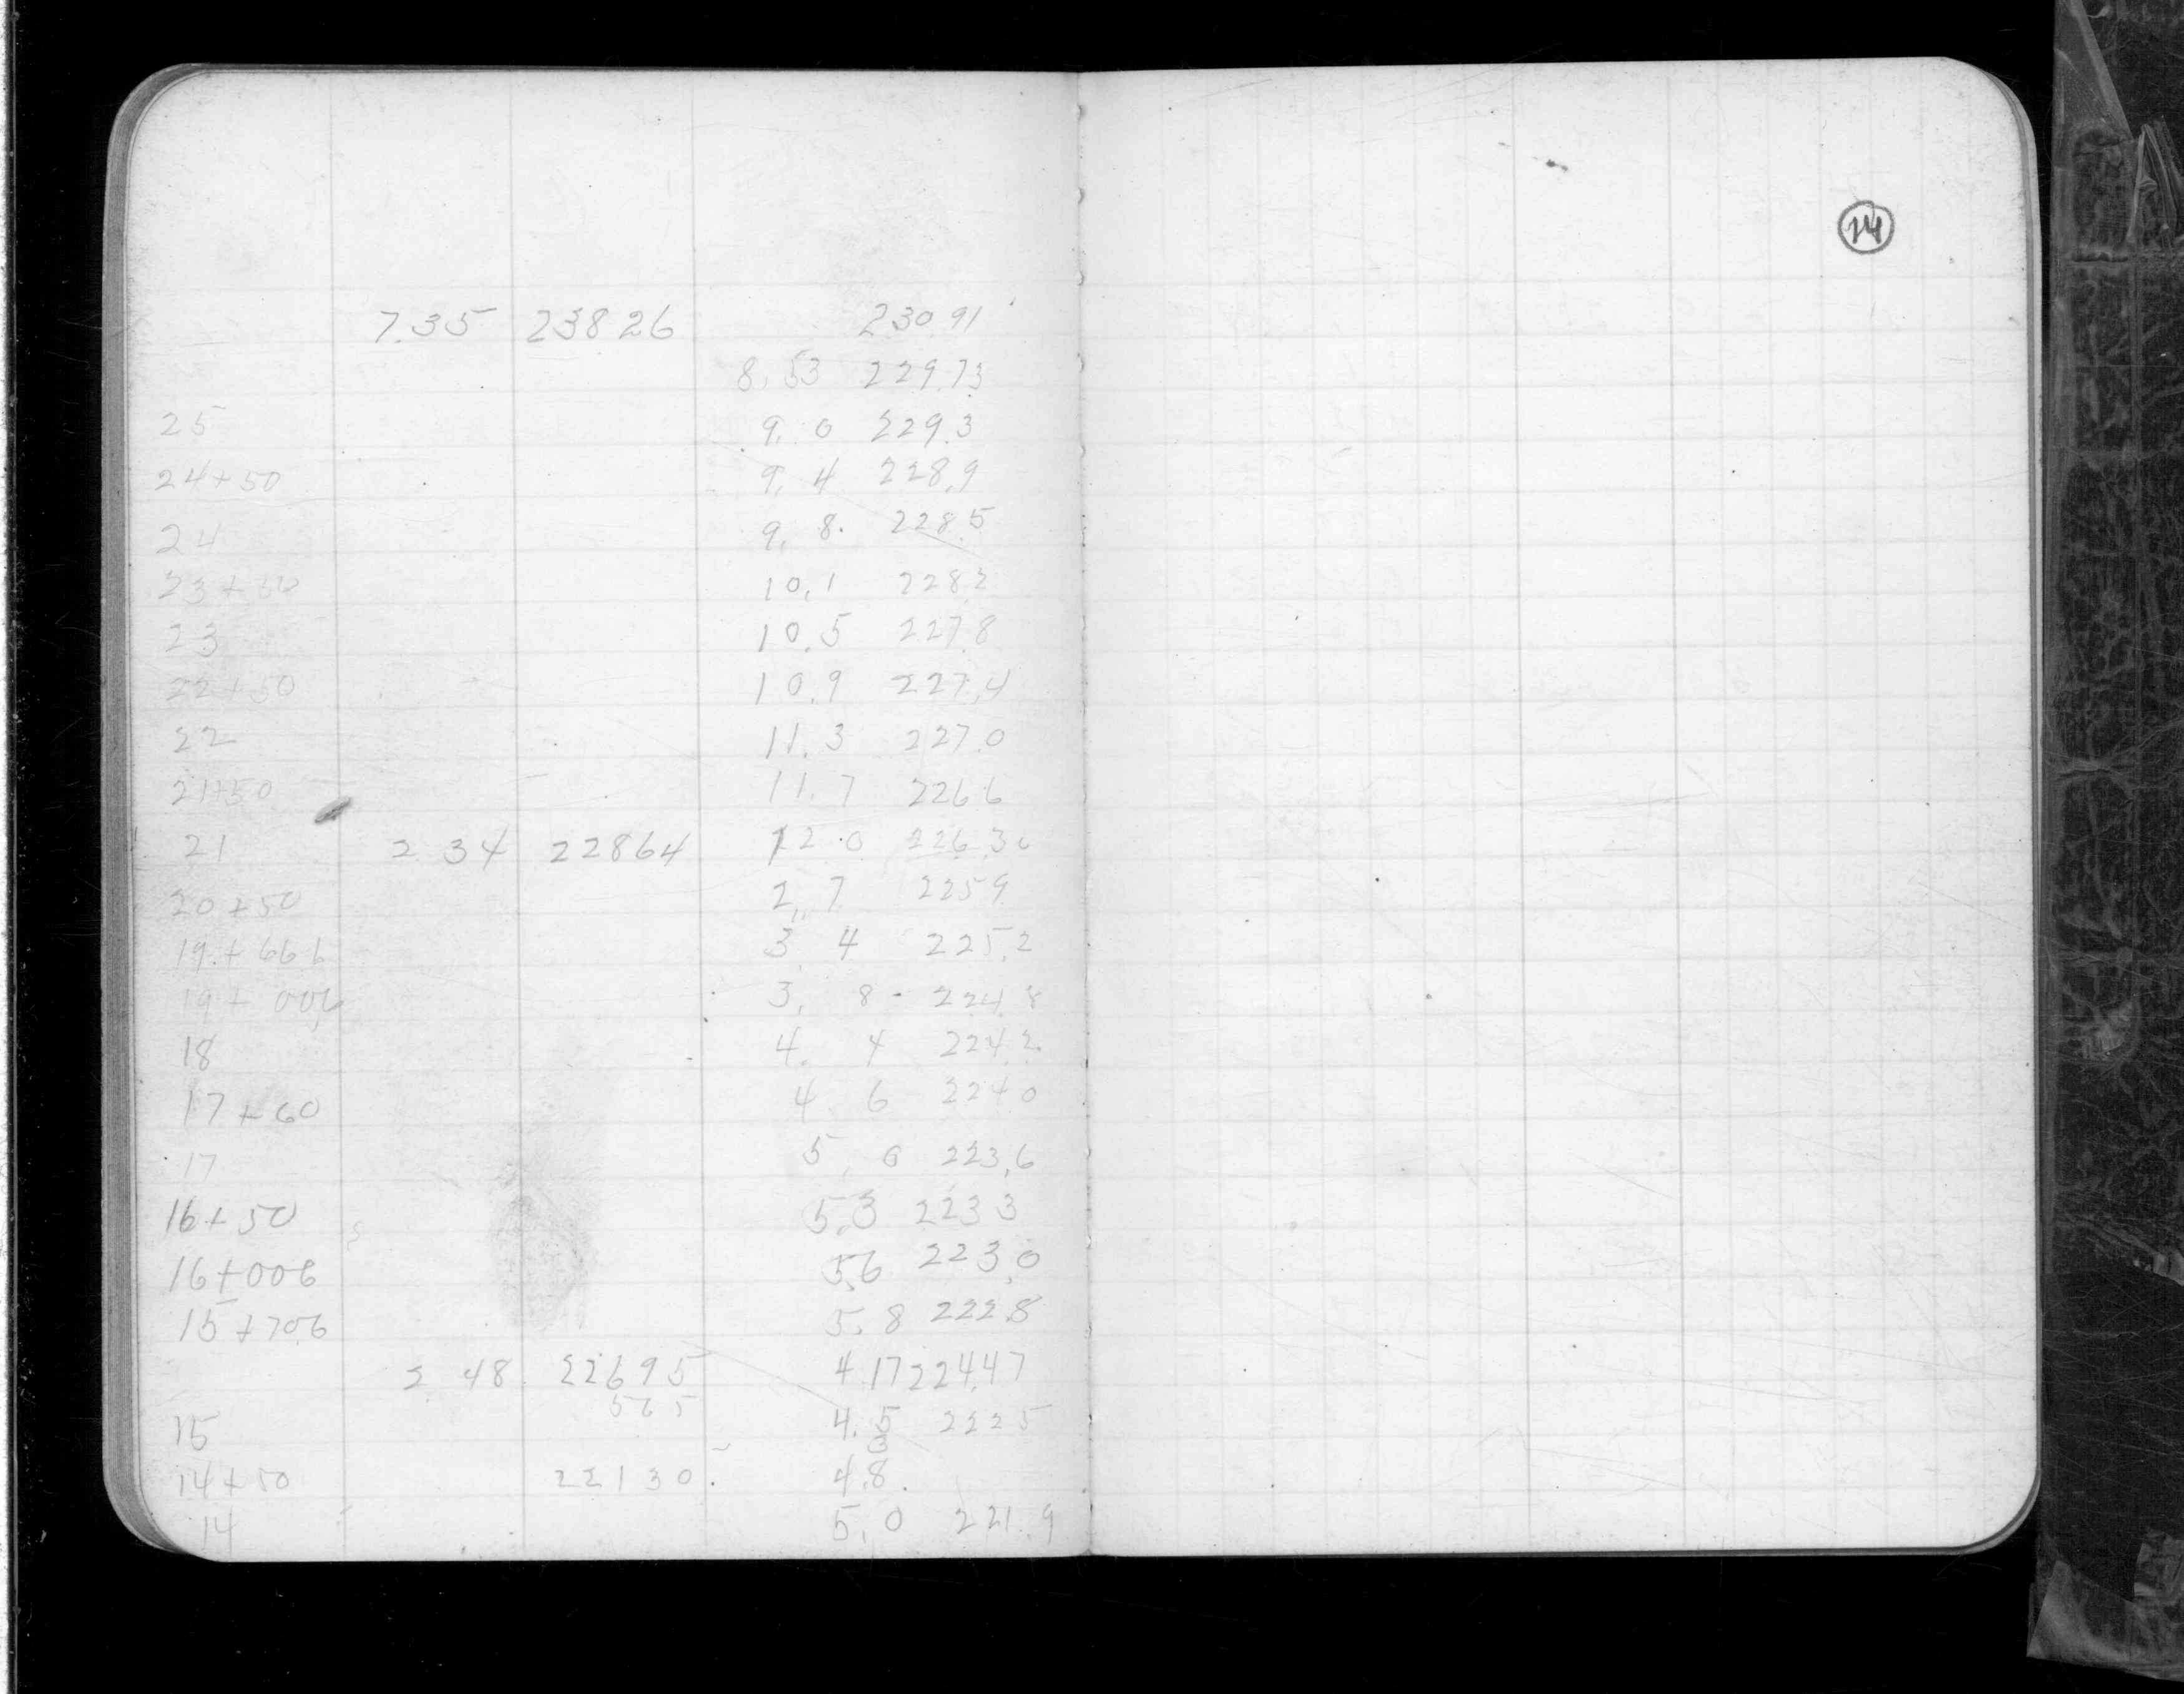 24
7.35 238 26 230 91
8.53 229.73
25 9.0 229.3
24+50 9.4 228.9
24 9.8 228.5
23+50 10.1 228.2
23 10.5 227.8
22+50 10.9 227.4
22 11.3 227.0
21+50 11.7 226.6
21 2 34 228 64 12.0 226.30
20+50 2.7 225 9
19+66 6 3 4 225.2
19+00.6 3.8 224.8
18 4.4 224.2
17+60 4 6 224 0
17 5.0 223.6
16+50 5.3 223 3
16+00 6 5.6 223.0
15+70.6 5.8 222.8
2 48 226 95 4.17 224.47
5 6 5
15 4.5 222 5
14+50 221 30 4.8
14 5.0 221.9